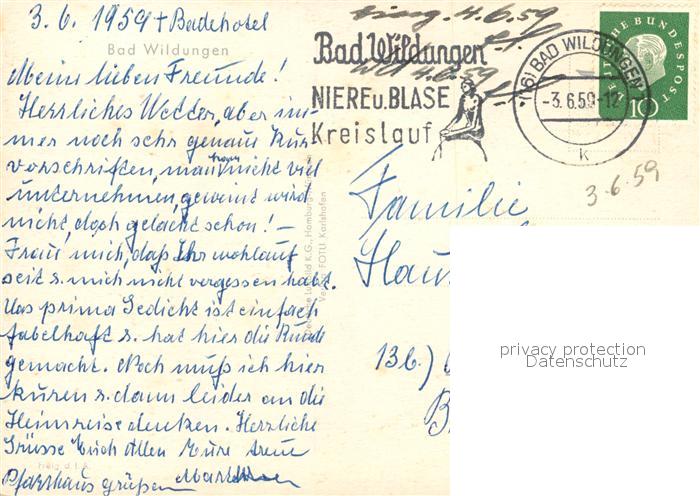 3.6. 1959 + Badehotel
Bad Wildungen
Meine lieben Freunde!
Herrliches Wetter, aber im-
mer noch sehr genaue Kur-
vorschriften, man kann nicht viel
unternehmen, geweint wird
nicht, doch gelacht schon! –
Freu mich, daß Ihr wohlauf
seit u. mich nicht vergessen habt.
Das prima Gedicht ist einfach
fabelhaft u. hat hier die Runde
gemacht. Noch muß ich hier
kuren u. dann leider an die
Heimreise denken. Herzliche
Grüsse Euch Allen Eure treue
Pfarrhaus grüßen
4.6.59
Bad Wildungen
4.6.59
NIERE u. BLASE
Kreislauf
(16) BAD WILDUNGEN
-3.6.59-12
k
DEUTSCHE BUNDESPOST
10
3.6.59
Familie
Hau
13b.)
B
FOTU Karlshafen
privacy protection
Datenschutz